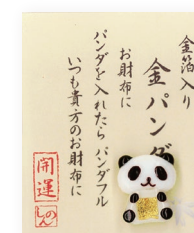 金箔入り
金パンダ
お財布に
パンダを入れたら パンダフル
いつも貴方のお財布に
開運